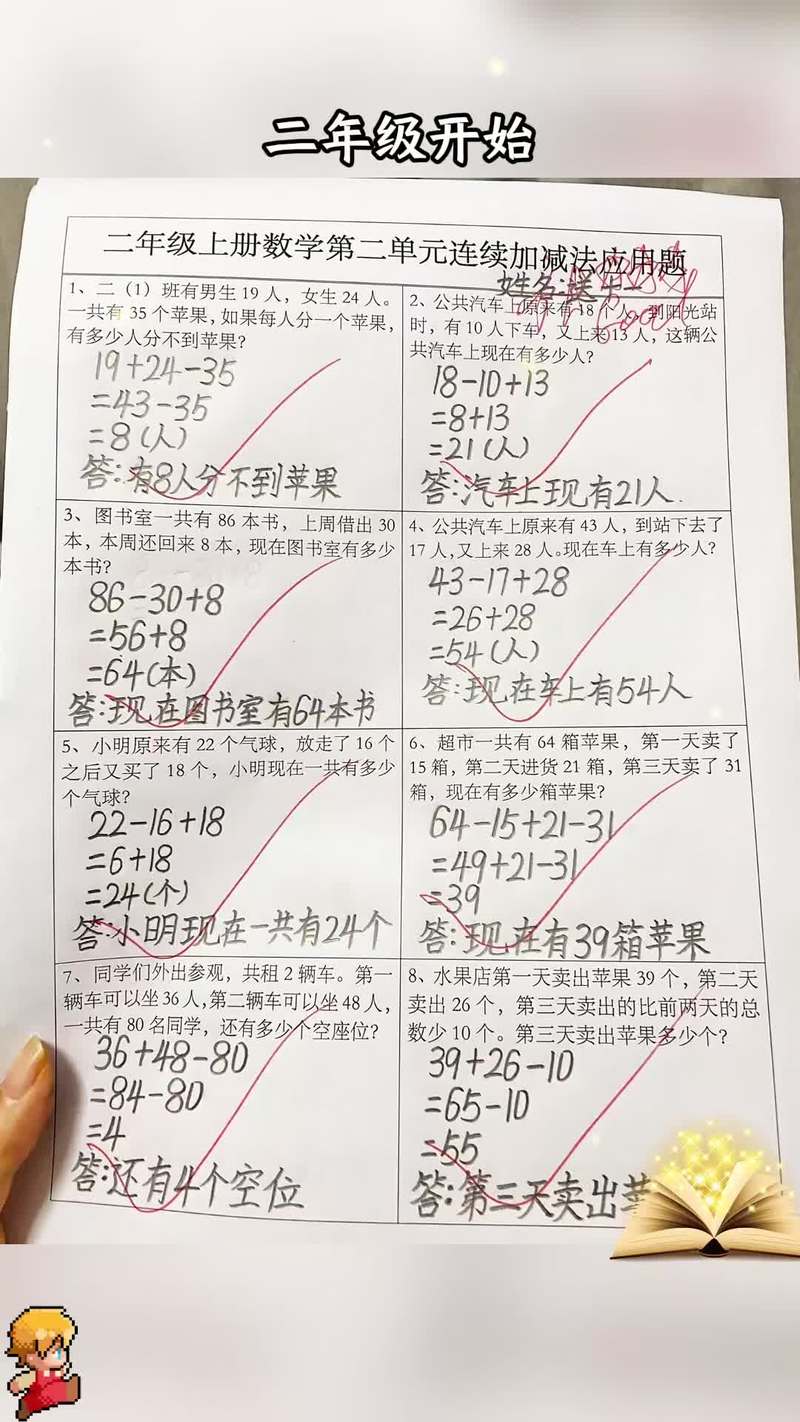 二年级开始
二年级上册数学第二单元连续加减法应用题
姓名:
1、二（1）班有男生19人，女生24人。
一共有35个苹果，如果每人分一个苹果，
有多少人分不到苹果？
19+24-35
=43-35
=8(人)
答:有8人分不到苹果
2、公共汽车上原来有18个人，到阳光站
时，有10人下车，又上来13人，这辆公
共汽车上现在有多少人？
18-10+13
=8+13
=21(人)
答:汽车上现有21人.
3、图书室一共有86本书，上周借出30
本，本周还回来8本，现在图书室有多少
本书？
86-30+8
=56+8
=64(本)
答:现在图书室有64本书
4、公共汽车上原来有43人，到站下去了
17人，又上来28人。现在车上有多少人？
43-17+28
=26+28
=54(人)
答:现在车上有54人
5、小明原来有22个气球，放走了16个
之后又买了18个，小明现在一共有多少
个气球？
22-16+18
=6+18
=24(个)
答:小明现在一共有24个
6、超市一共有64箱苹果，第一天卖了
15箱，第二天进货21箱，第三天卖了31
箱，现在有多少箱苹果？
64-15+21-31
=49+21-31
=39
答:现在有39箱苹果
7、同学们外出参观，共租2辆车。第一
辆车可以坐36人，第二辆车可以坐48人，
一共有80名同学，还有多少个空座位？
36+48-80
=84-80
=4
答:还有4个空位
8、水果店第一天卖出苹果39个，第二天
卖出26个，第三天卖出的比前两天的总
数少10个。第三天卖出苹果多少个？
39+26-10
=65-10
=55
答:第三天卖出